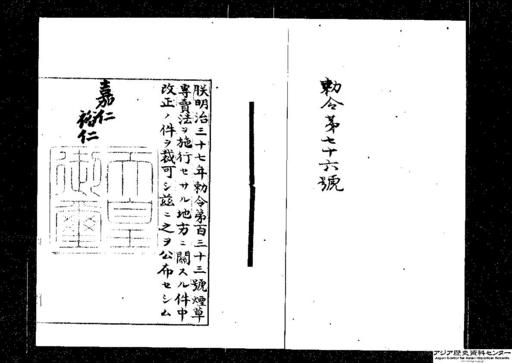 勅令第七十六號
朕明治三十七年勅令第百三十三號煙草
專賣法ヲ施行セサル地方ニ關スル件中
改正ノ件ヲ裁可シ茲ニ之ヲ公布セシム
嘉仁
裕仁
天皇
御璽
アジア歴史資料センター
Japan Center for Asian Historical Records